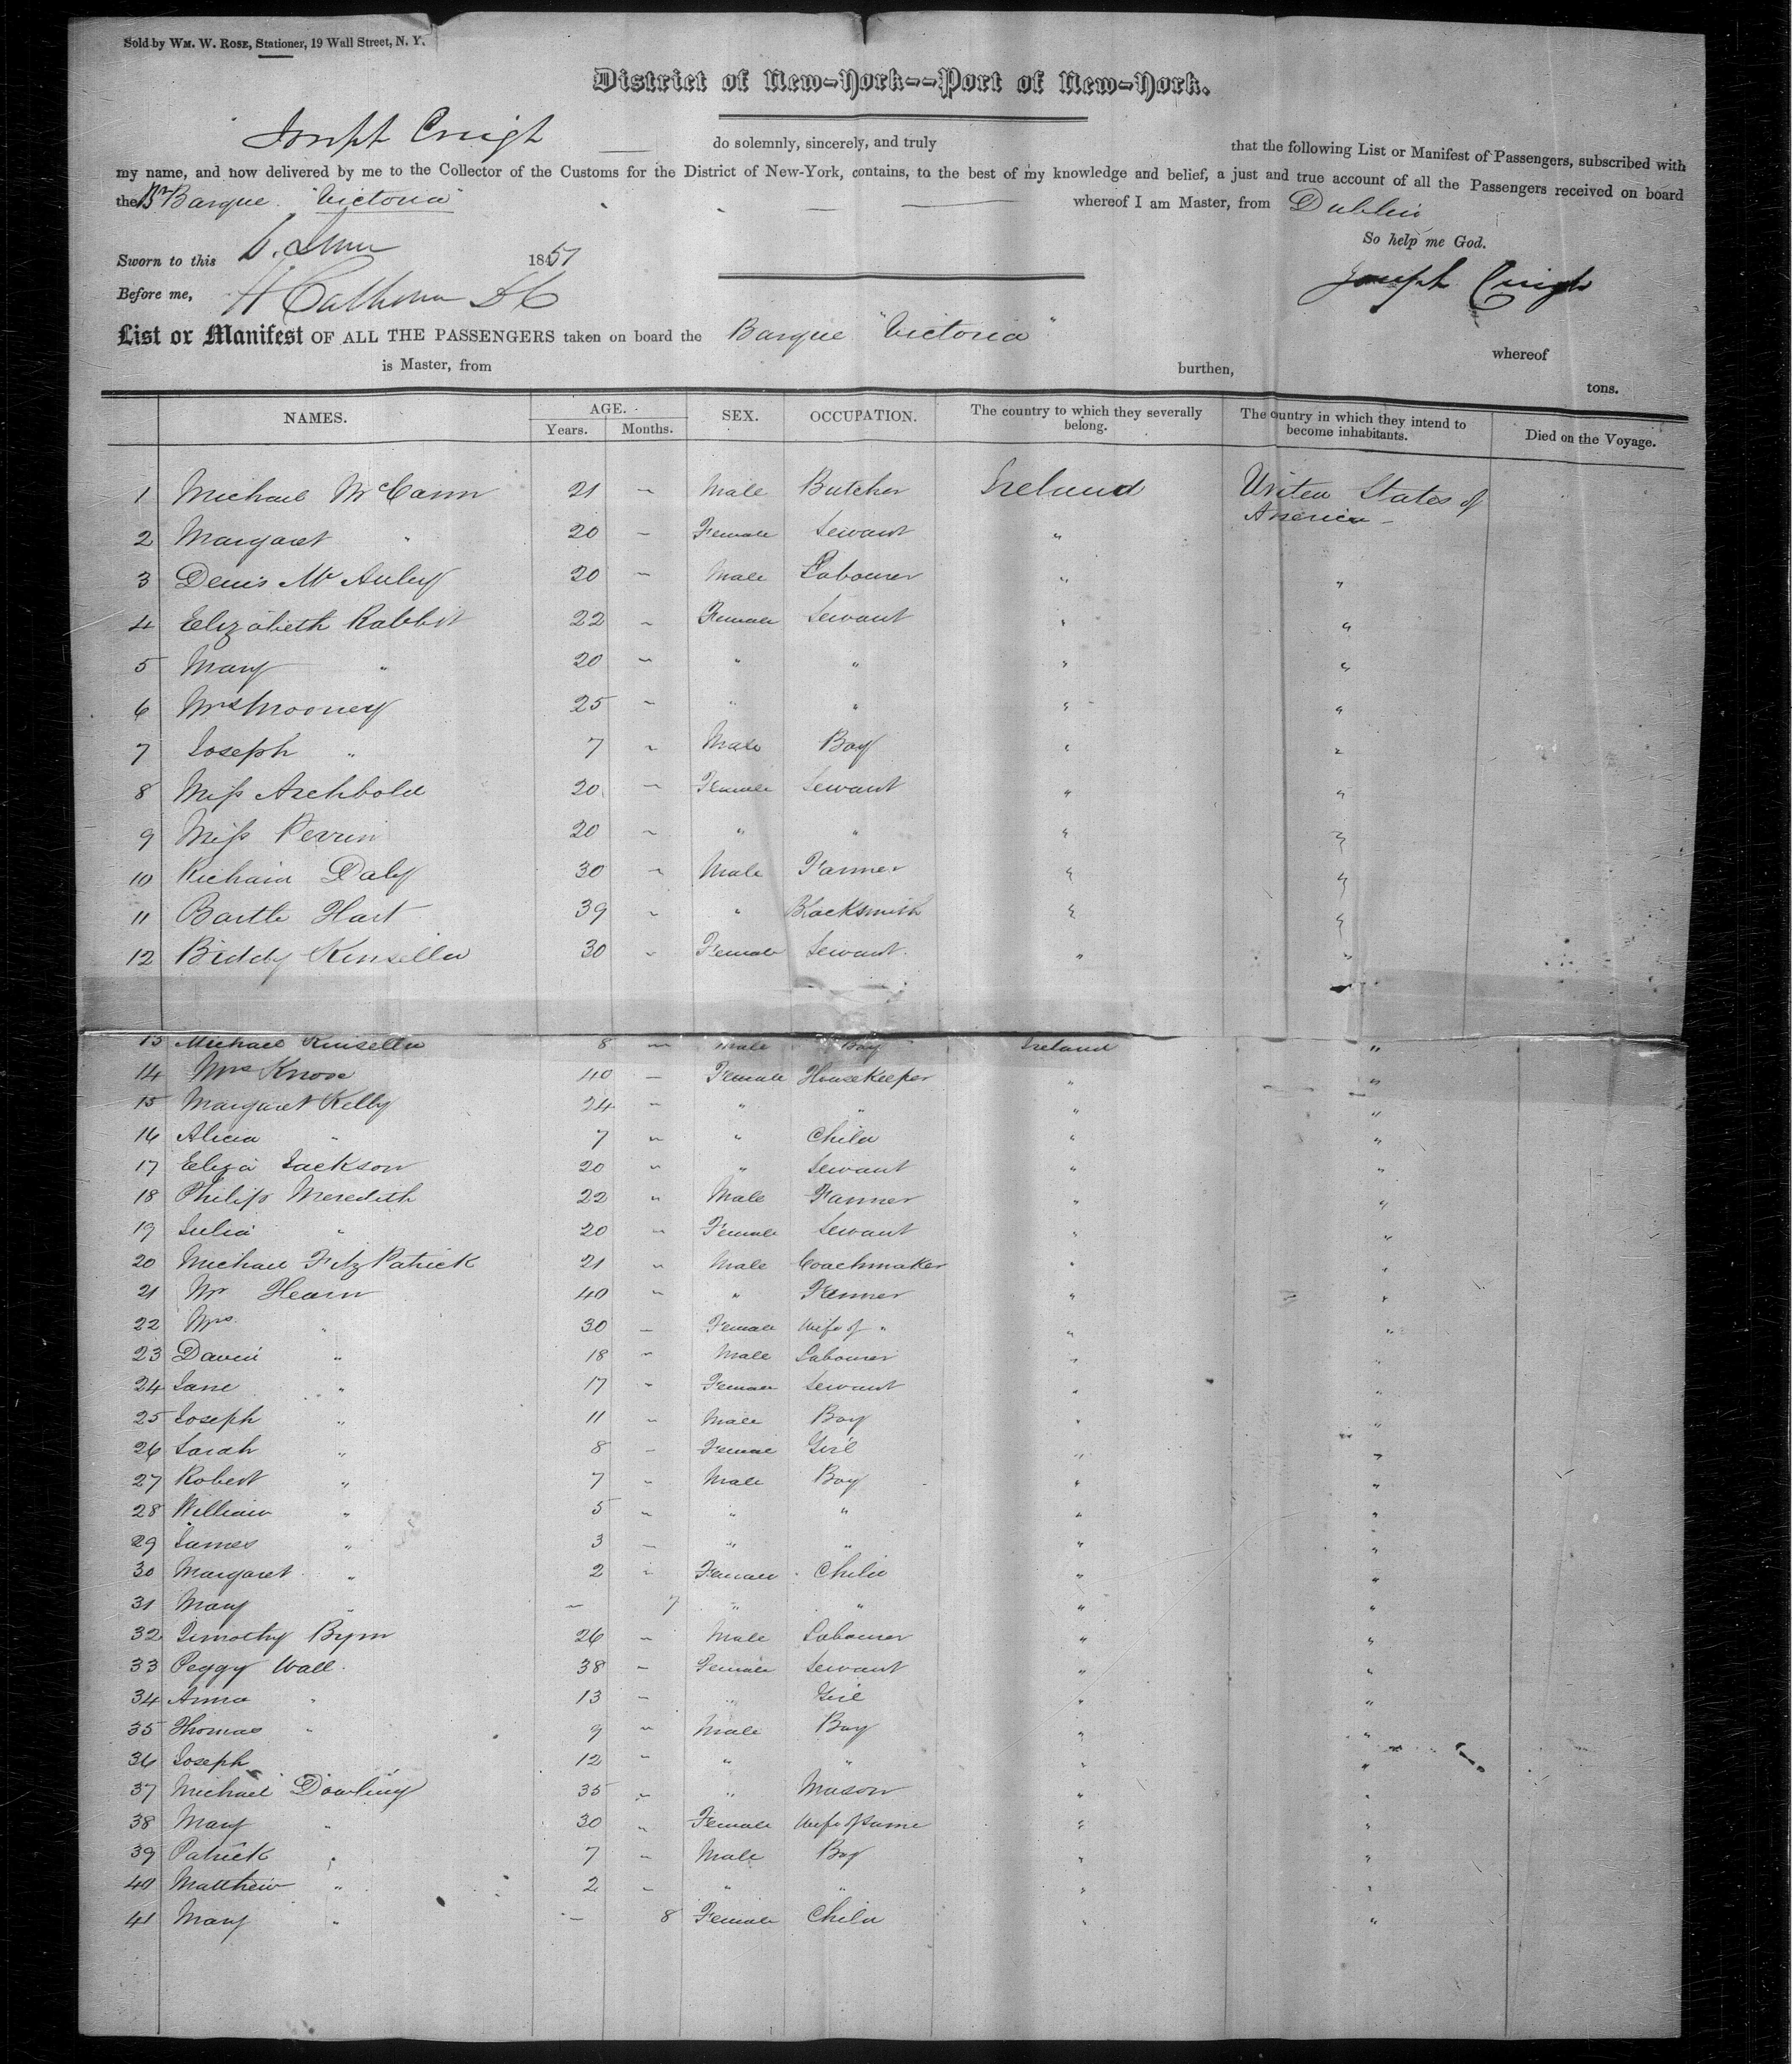 Sold by WM. W. ROSE, Stationer, 19 Wall Street, N. Y.
District of New-York--Port of New-York.
Joseph
do solemnly, sincerely, and truly that the following List or Manifest of Passengers, subscribed with
my name, and now delivered by me to the Collector of the Customs for the District of New-York, contains, to the best of my knowledge and belief, a just and true account of all the Passengers received on board
the Br Barque "Victoria" whereof I am Master, from Dublin
So help me God.
Sworn to this 6. June 1851
Joseph
Before me, H Calhoun DC
List or Manifest OF ALL THE PASSENGERS taken on board the Barque "Victoria" whereof
is Master, from burthen, tons.
NAMES. AGE. Years. Months. SEX. OCCUPATION. The country to which they severally belong. The country in which they intend to become inhabitants. Died on the Voyage.
1 Michael McCann 21 – Male Butcher Ireland United States of America –
2 Margaret " 20 – Female Servant " 
3 Denis McAuley 20 – Male Labourer " "
4 Elizabeth Rabbit 22 – Female Servant " "
5 Mary " 20 – " " " "
6 Mrs Mooney 25 – " " " "
7 Joseph " 7 – Male Boy " "
8 Miss Archbold 20 – Female Servant " "
9 Miss Perrin 20 – " " " "
10 Richard Daly 30 – Male Farmer " "
11 Bartle Hart 39 – " Blacksmith " "
12 Biddy Kinsella 30 – Female Servant " "
13 Michael Kinsella 8 – Male Boy Ireland "
14 Mrs Knox 40 – Female Housekeeper " "
15 Margaret Kelly 24 – " " " "
16 Alicia " 7 – " Child " "
17 Eliza Jackson 20 – " Servant " "
18 Philip Meredith 22 " Male Farmer " "
19 Julia " 20 – Female Servant " "
20 Michael FitzPatrick 21 " Male Coachmaker " "
21 Mr Hearn 40 " " Farmer " "
22 Mrs " 30 – Female Wife of " " "
23 David " 18 – Male Labourer " "
24 Jane " 17 – Female Servant " "
25 Joseph " 11 – Male Boy " "
26 Sarah " 8 – Female Girl " "
27 Robert " 7 – Male Boy " "
28 William " 5 – " " " "
29 James " 3 – " " " "
30 Margaret " 2 – Female Child " "
31 Mary " – 7 " " " "
32 Timothy Byrn 26 – Male Labourer " "
33 Peggy Wall 38 – Female Servant " "
34 Anna " 13 – " Girl " "
35 Thomas " 9 – Male Boy " "
36 Joseph 12 – " " " "
37 Michael Dowling 35 – " Mason " "
38 Mary " 30 " Female Wife of same " "
39 Patrick " 7 – Male Boy " "
40 Matthew " 2 – " " " "
41 Mary " – 8 Female Child " "